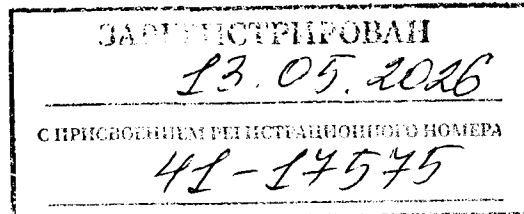 ЗАРЕГИСТРИРОВАН
13.05.2026
С ПРИСВОЕНИЕМ РЕГИСТРАЦИОННОГО НОМЕРА
41-17575